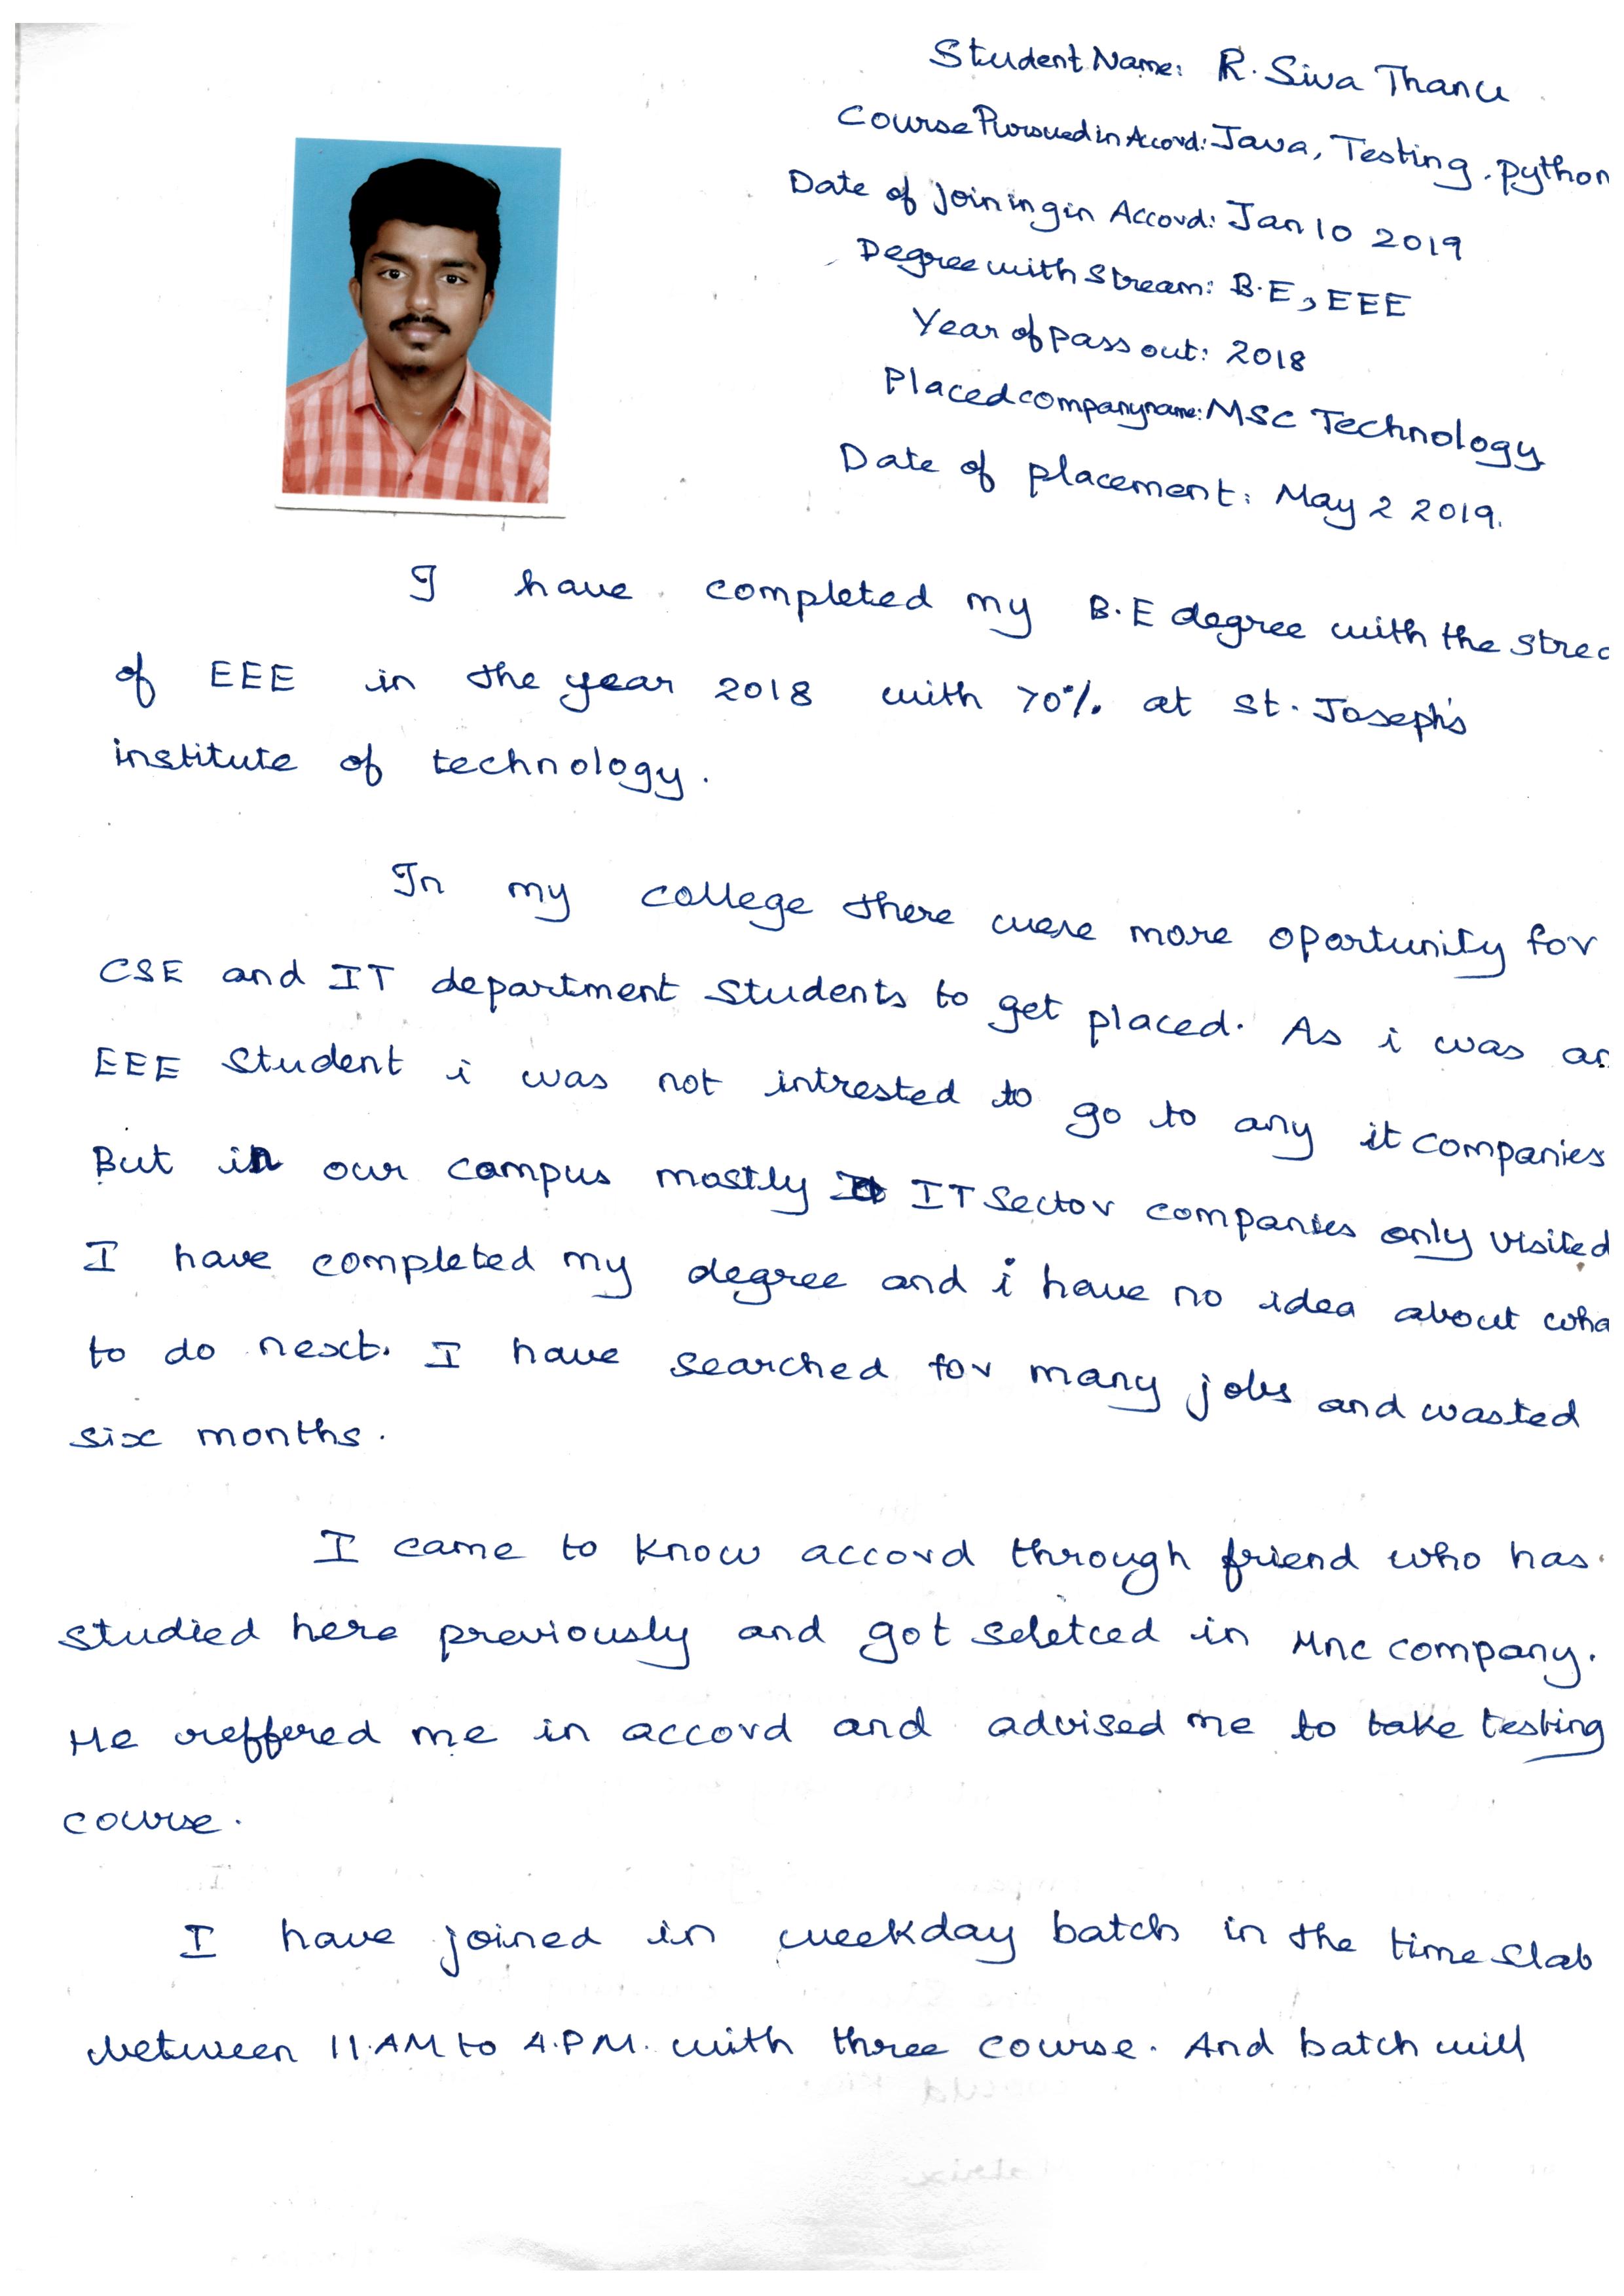 Student Name: R. Siva Thanu
Course Pursued in Accord: Java, Testing, python
Date of Joining in Accord: Jan 10 2019
Degree with Stream: B.E, EEE
Year of pass out: 2018
Placed company name: MSC Technology
Date of placement: May 2 2019.
I have completed my B.E degree with the strea
of EEE in the year 2018 with 70% at St. Joseph's
institute of technology.
In my college there were more oportunity for
CSE and IT department Students to get placed. As i was an
EEE Student i was not intrested to go to any it companies
But in our campus mostly IT Sector companies only visited
I have completed my degree and i have no idea about wha
to do next. I have searched for many jobs and wasted
six months.
I came to know accord through friend who has
studied here previously and got seletced in Mnc company.
He reffered me in accord and advised me to take testing
course.
I have joined in weekday batch in the time slab
between 11.AM to 4.P.M. with three course. And batch will